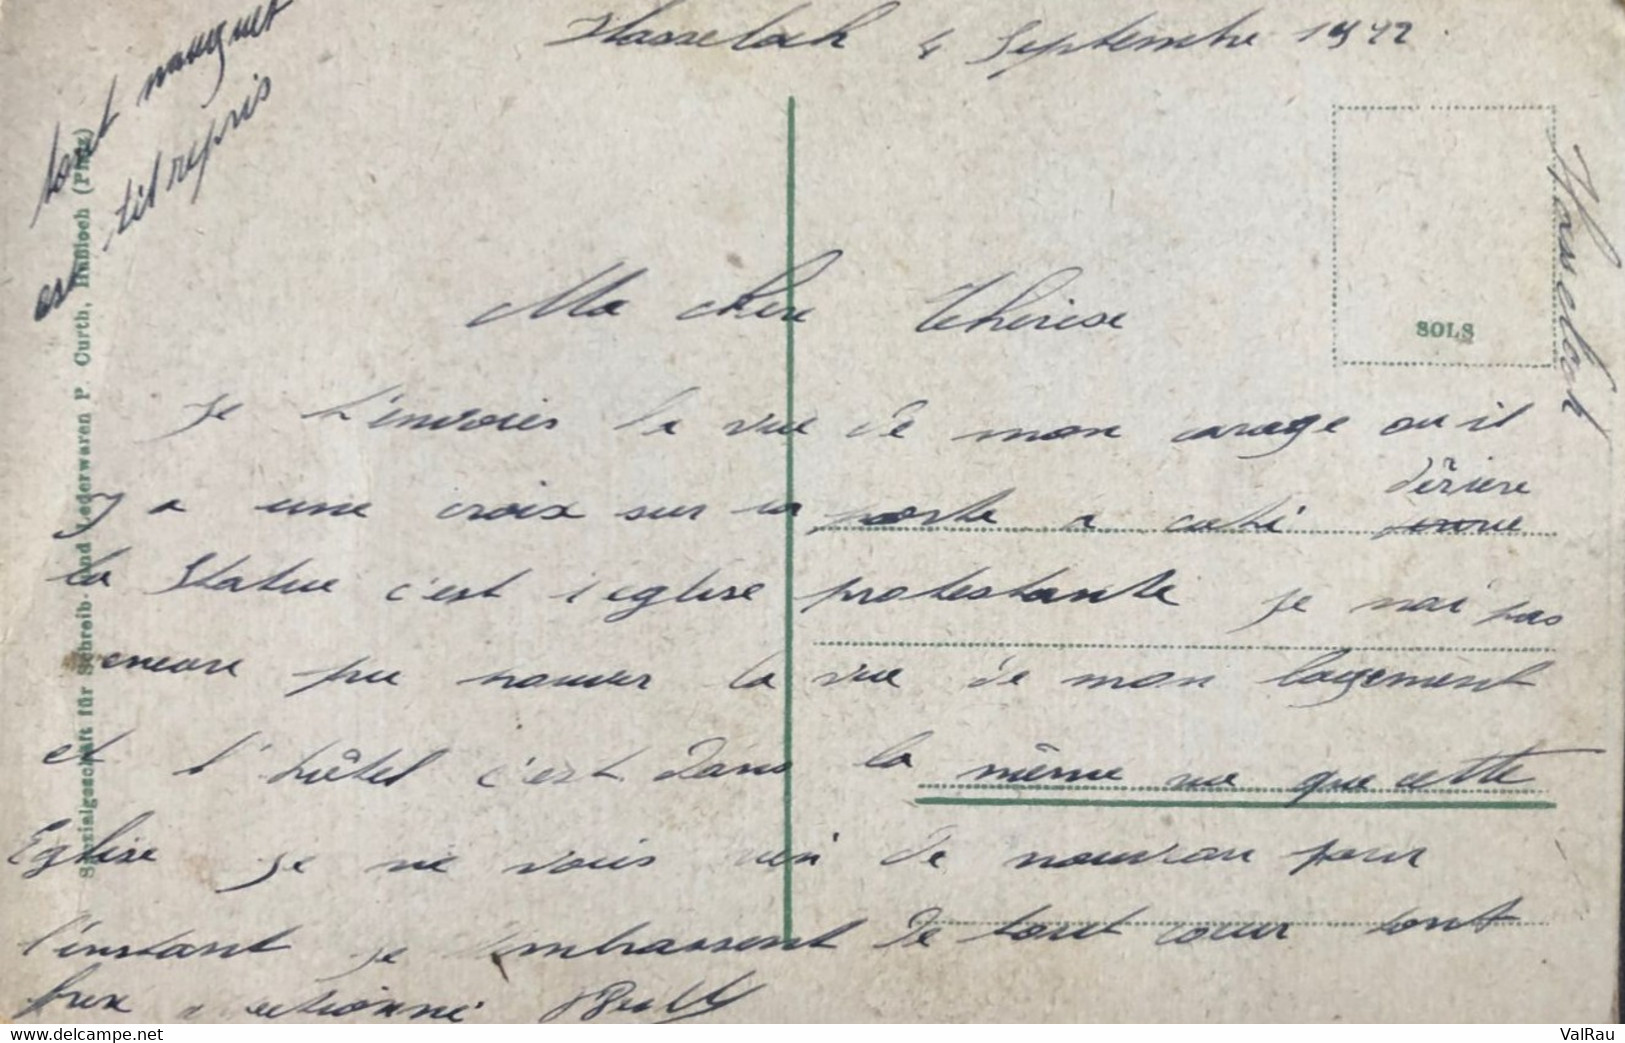 Hasseloch 4 Septembre 19
tout
est til repris
Hasseloch
SOLS
Spezialgeschäft für Schreib- und Lederwaren P. Curth, Haßloch (Pfalz)
Ma chère Thérèse
Je t'envoies la vue de mon garage ou il
y a une croix sur la porte a coté dérière
la Statue c'est l'eglise protestante je nai pas
encore pu trouver la vue de mon logement
et l'hôtel c'est dans la même rue que cette
Eglise je ne vois rien de nouveau pour
l'instant je embrassent de tout coeur tont
ValRau